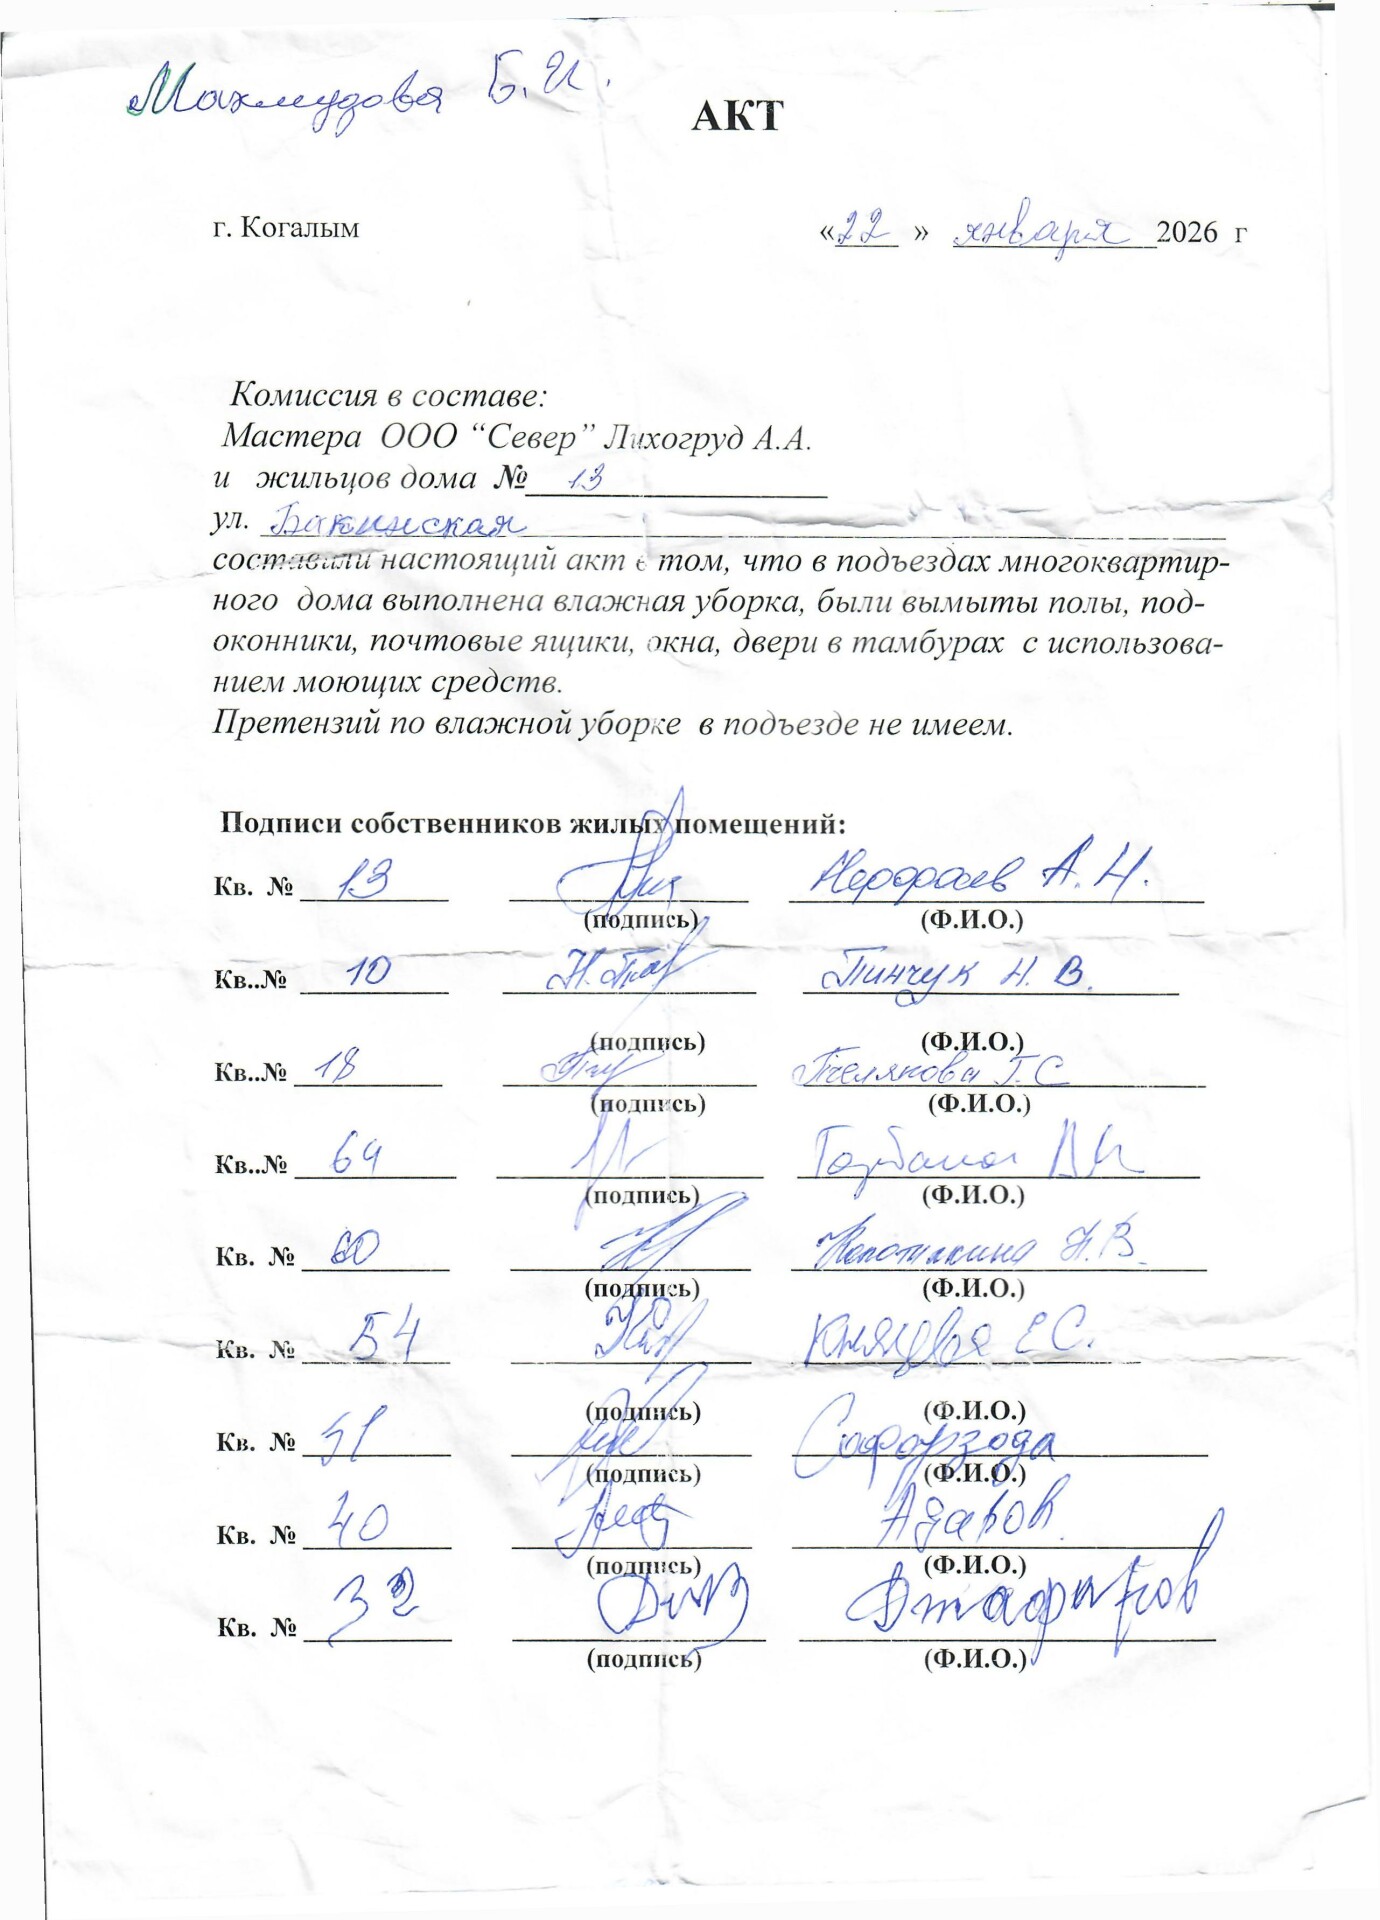 Махмудова Б.И.
АКТ
г. Когалым «22» января 2026 г
Комиссия в составе:
Мастера ООО “Север” Лихогруд А.А.
и жильцов дома № 13
ул. Бакинская
составили настоящий акт о том, что в подъездах многоквартир-
ного дома выполнена влажная уборка, были вымыты полы, под-
оконники, почтовые ящики, окна, двери в тамбурах с использова-
нием моющих средств.
Претензий по влажной уборке в подъезде не имеем.
Подписи собственников жилых помещений:
Кв. № 13 А.Н.
(подпись) (Ф.И.О.)
Кв..№ 10 Пинчук Н.В.
(подпись) (Ф.И.О.)
Кв..№ 18 Пчелякова Г.С
(подпись) (Ф.И.О.)
Кв..№ 64
(подпись) (Ф.И.О.)
Кв. № 60 Н.В.
(подпись) (Ф.И.О.)
Кв. № 54 Князева Е.С.
(подпись) (Ф.И.О.)
Кв. № 51 Сафарзода
(подпись) (Ф.И.О.)
Кв. № 40
(подпись) (Ф.И.О.)
Кв. № 32
(подпись) (Ф.И.О.)